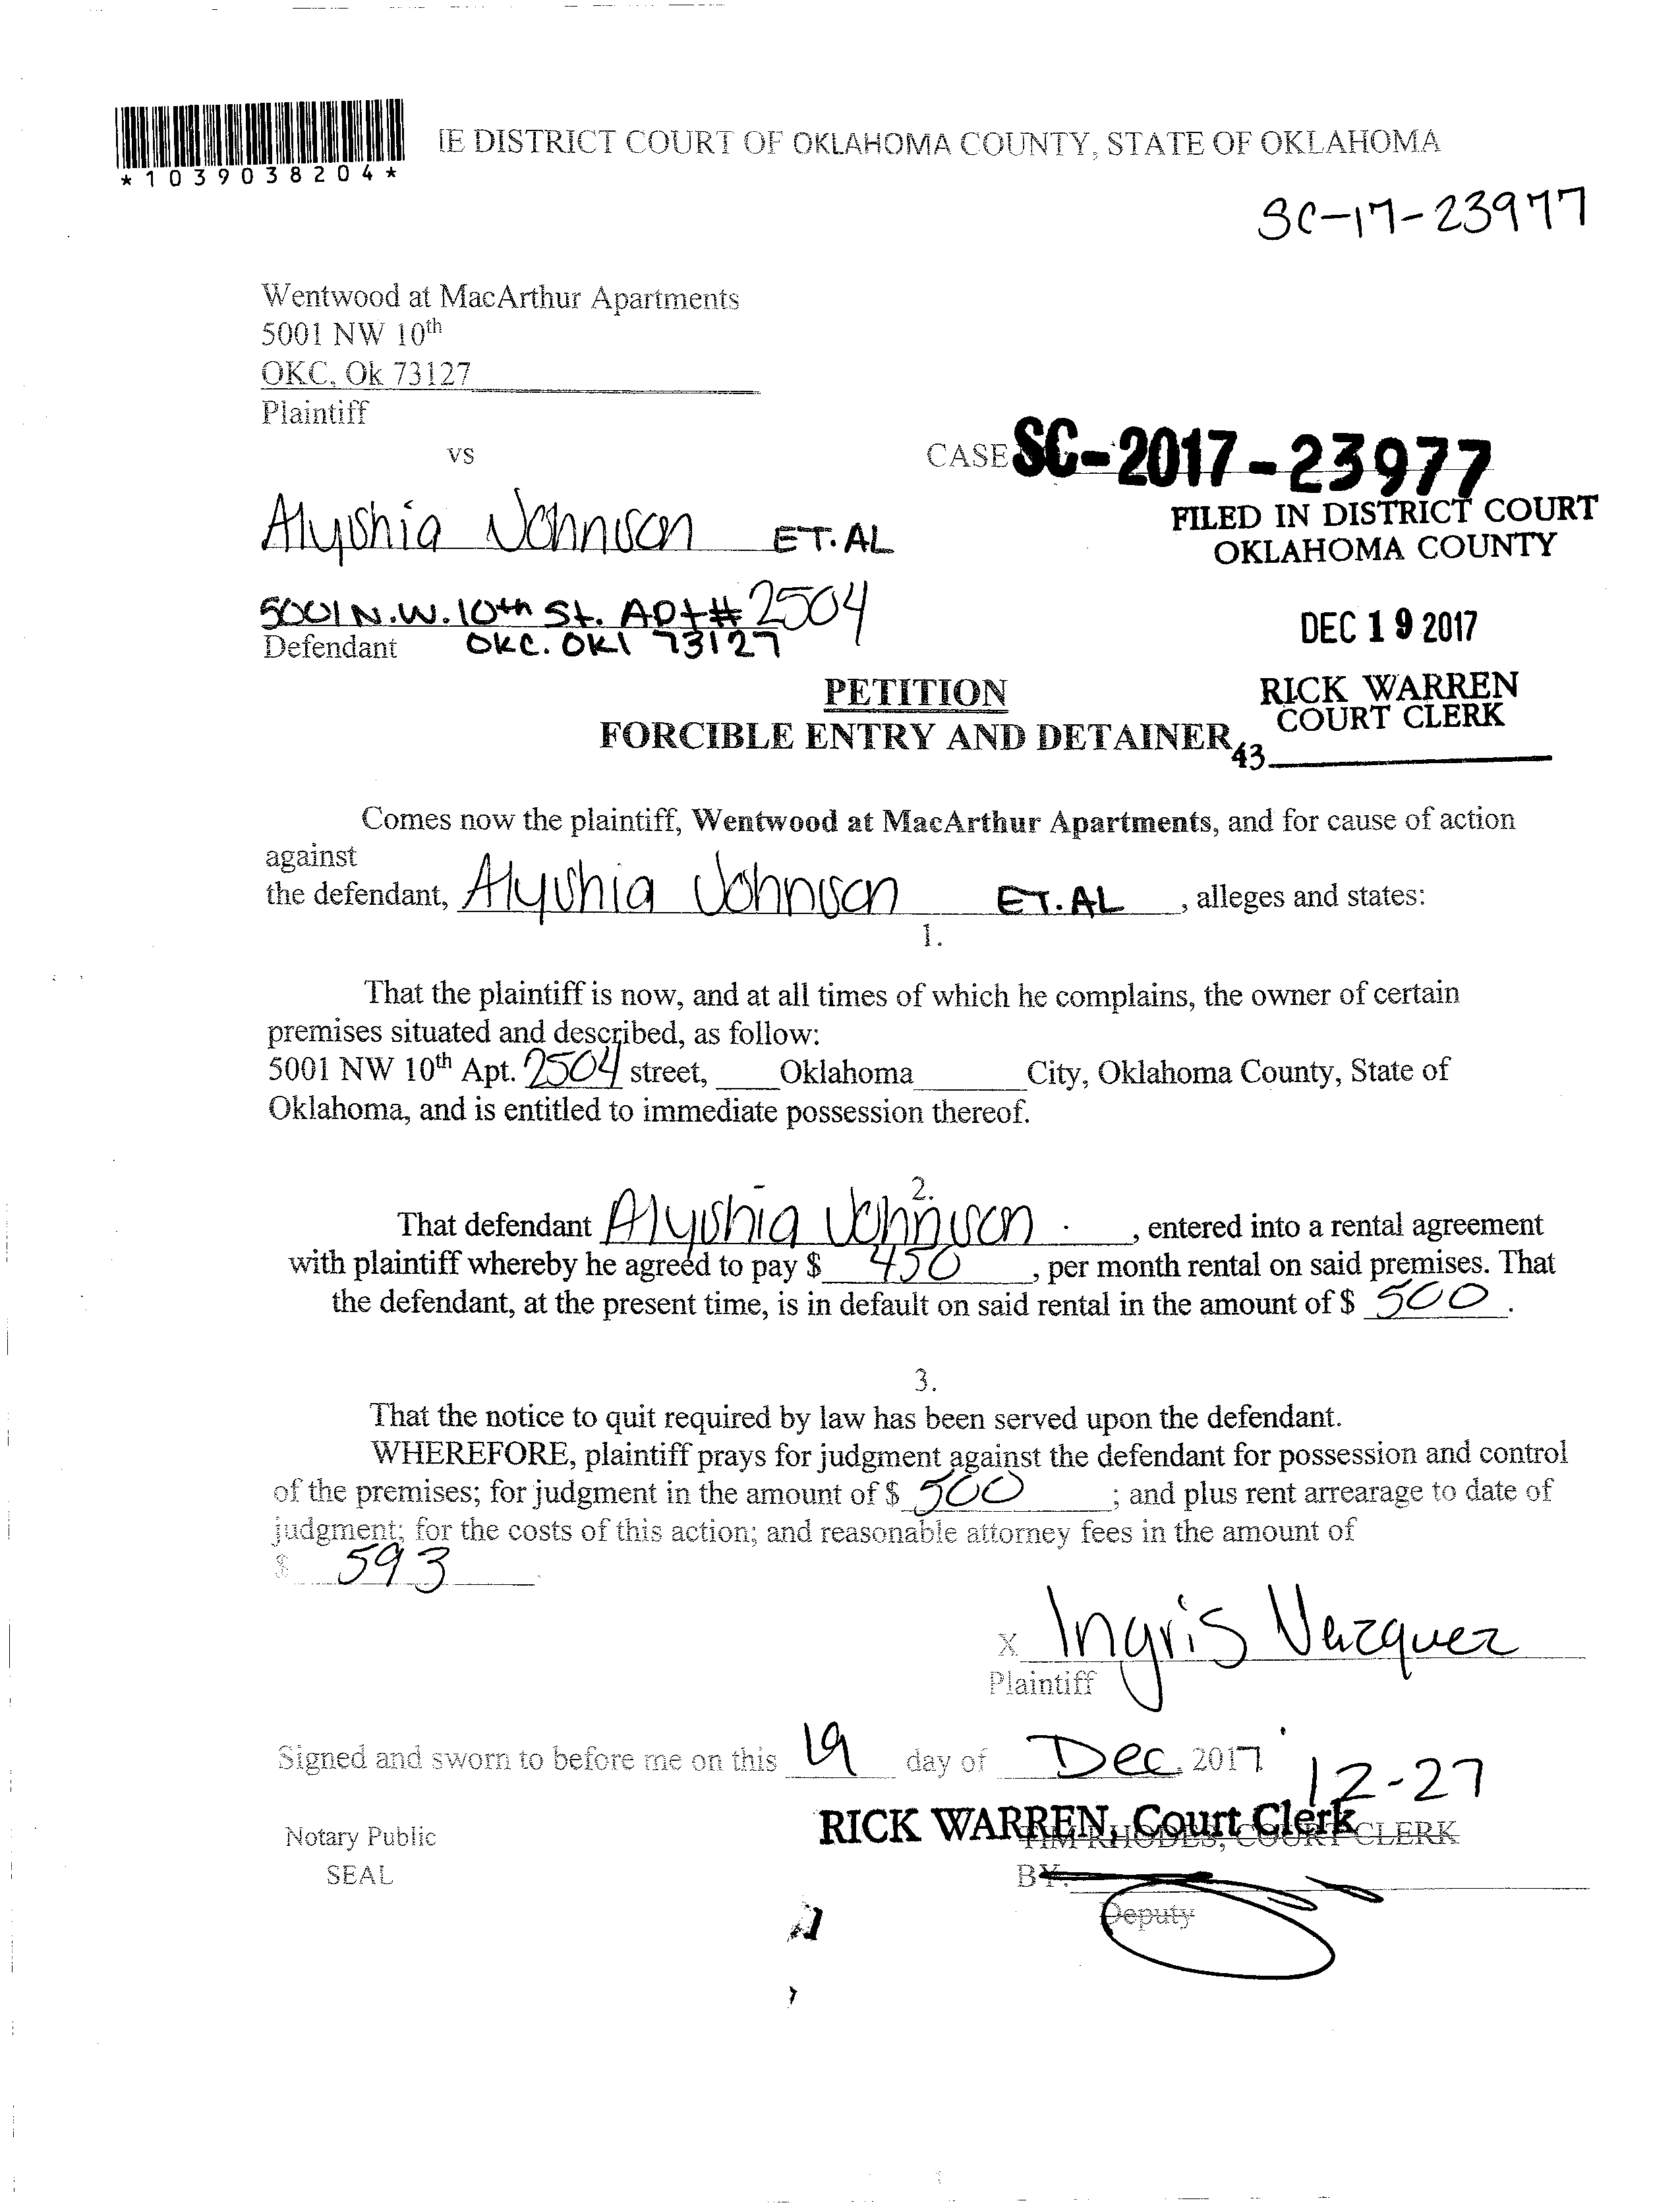 *1039038204*
IE DISTRICT COURT OF OKLAHOMA COUNTY, STATE OF OKLAHOMA
SC-17-23977
Wentwood at MacArthur Apartments
5001 NW 10th
OKC, Ok 73127
Plaintiff
vs
CASE SC-2017-23977
FILED IN DISTRICT COURT
OKLAHOMA COUNTY
Alyshia Johnson ET.AL
5001 N.W. 10th St. Apt# 2504
DEC 19 2017
Defendant OKC. OKl 73127
PETITION
RICK WARREN
COURT CLERK
FORCIBLE ENTRY AND DETAINER
43
Comes now the plaintiff, Wentwood at MacArthur Apartments, and for cause of action
against
the defendant, Alyshia Johnson ET.AL, alleges and states:
1.
That the plaintiff is now, and at all times of which he complains, the owner of certain
premises situated and described, as follow:
5001 NW 10th Apt. 2504 street, Oklahoma City, Oklahoma County, State of
Oklahoma, and is entitled to immediate possession thereof.
2.
That defendant Alyshia Johnson, entered into a rental agreement
with plaintiff whereby he agreed to pay $ 450, per month rental on said premises. That
the defendant, at the present time, is in default on said rental in the amount of $ 500.
3.
That the notice to quit required by law has been served upon the defendant.
WHEREFORE, plaintiff prays for judgment against the defendant for possession and control
of the premises; for judgment in the amount of $ 500; and plus rent arrearage to date of
judgment; for the costs of this action; and reasonable attorney fees in the amount of
$ 593
X Ingris Vazquez
Plaintiff
Signed and sworn to before me on this 19 day of Dec. 2017
12-27
RICK WARREN, Court Clerk
TIM RHODES, COURT CLERK
Notary Public
SEAL
BY:
Deputy